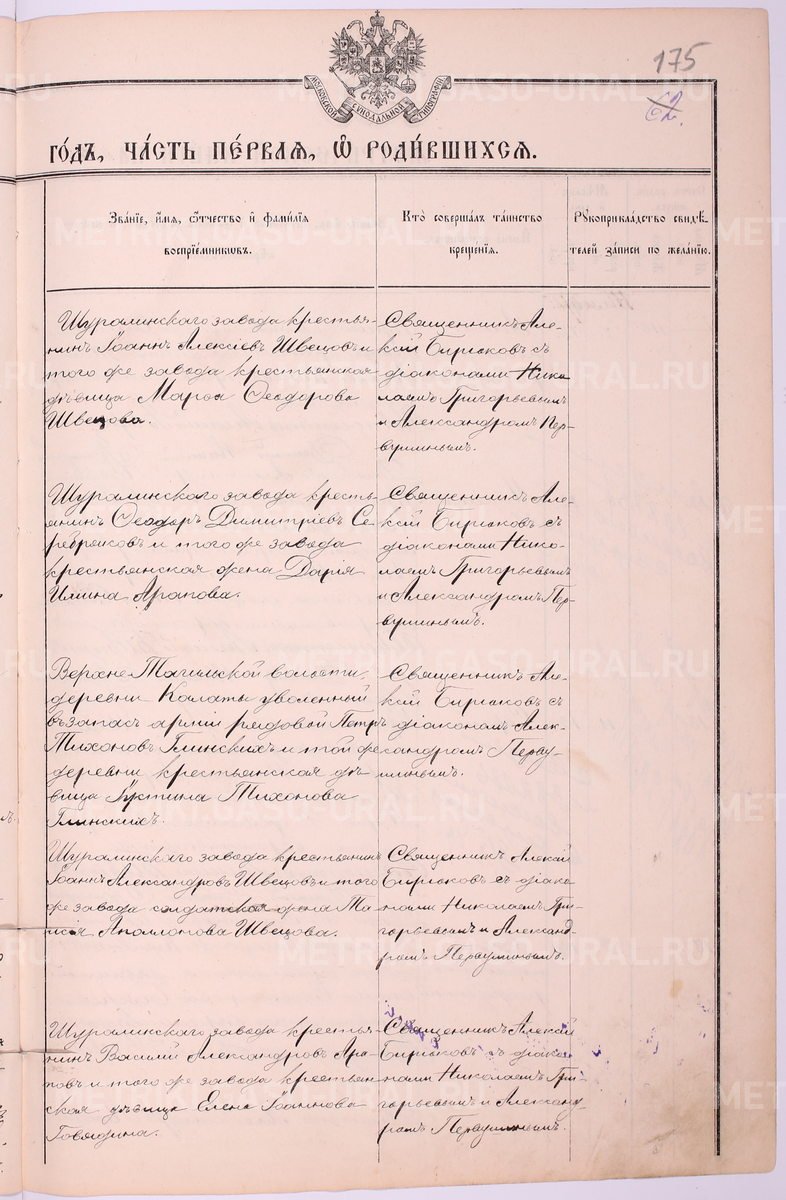 175
62.
МОСКОВСКОЙ СѴНОДАЛЬНОЙ ТИПОГРАФІИ
ГО́ДЪ, ЧА́СТЬ ПЕ́РВАЯ, Ѡ҆ РОДИ́ВШИХСЯ.
Зва́нїе, и҆́мя, ѻ҆́тчество и҆ фами́лїя
воспрїе́мниковъ.
Кто̀ соверша́лъ та́инство
креще́нїя.
Рꙋкоприкла́дство свидѣ́-
телей за́писи по жела́нїю.
Шуралинскаго завода крестья-
нинъ Іоаннъ Алексіевъ Швецовъ и
того же завода крестьянская
дѣвица Марья Ѳеодорова
Швецова.
Священникъ Але-
ксій Бирюковъ съ
діаконами Нико
лаемъ Григорьевымъ
и Александромъ Пер-
вушинымъ.
Шуралинскаго завода кресть-
янинъ Ѳеодоръ Димитріевъ Се-
ребряковъ и того же завода
крестьянская жена Дарія
Илина Арапова.
Священникъ Але-
ксій Бирюковъ съ
діаконами Нико-
лаемъ Григорьевымъ
и Александромъ Пер-
вушинымъ.
Верхне-Тагильской волости,
деревни Калаты уволенный
въ запасъ арміи рядовой Петръ
Тихоновъ Глинскихъ и той же
деревни крестьянская дѣ-
вица Іустина Тихонова
Глинскихъ.
Священникъ Але-
ксій Бирюковъ съ
діакономъ Алек-
сандромъ Перву-
шинымъ.
Шуралинскаго завода крестьянинъ
Іоаннъ Александровъ Швецовъ и того
же завода солдатская жена Та-
исія Аполлонова Швецова.
Священникъ Алексій
Бирюковъ съ діако
нами Николаемъ Гри-
горьевымъ и Александ-
ромъ Первушинымъ.
Шуралинскаго завода крестья-
нинъ Василій Александровъ Ара-
повъ и того же завода крестьян-
ская дѣвица Елена Іоаннова
Говядина.
Священникъ Алексій
Бирюковъ съ діако-
нами Николаемъ Гри-
горьевымъ и Александ-
ромъ Первушинымъ.
METRIKI.GASO-URAL.RU